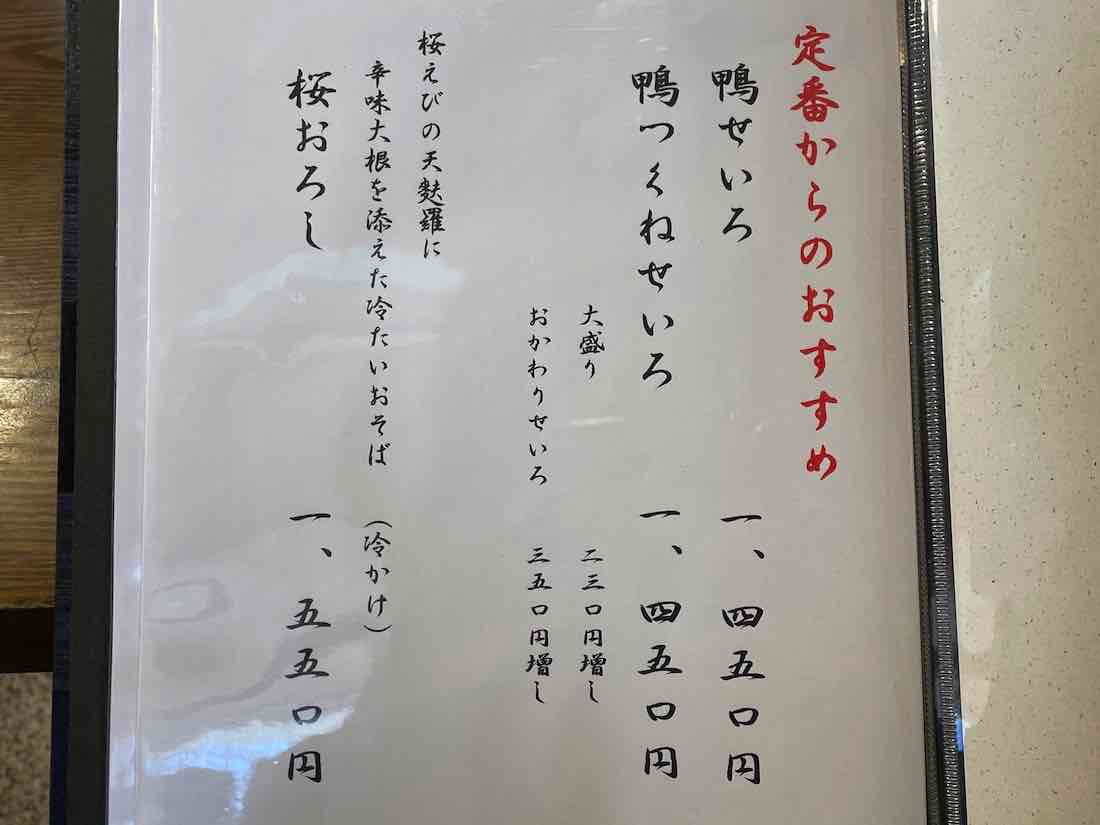 定番からのおすすめ
鴨せいろ 一、四五〇円
鴨つくねせいろ 一、四五〇円
大盛り 二三〇円増し
おかわりせいろ 三五〇円増し
桜えびの天麩羅に
辛味大根を添えた冷たいおそば (冷かけ)
桜おろし 一、五五〇円